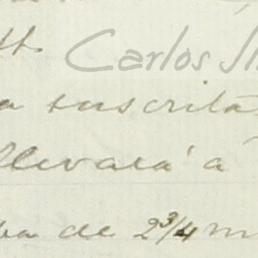 Carlos
a suscrita
llevará á
de 2 3/4 m